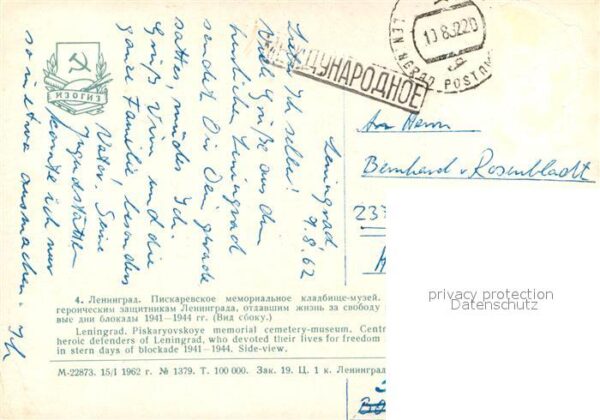 ИЗОГИЗ
МЕЖДУНАРОДНОЕ
LENINGRAD POSTAMT
10 8 62 20
Leningrad,
9.8.62
Viele Grüße aus dem
herrlichen Leningrad
sendet Dir Dein gerade
Grüß Vim und die
ganze Familie, besonders
Vater. Seine
Jugendstätten
konnte ich nur
so in etwa ausmachen. Ich
An Herrn
Bernhard v. Rosenbladt
237
privacy protection
Datenschutz
4. Ленинград. Пискаревское мемориальное кладбище-музей.
героическим защитникам Ленинграда, отдавшим жизнь за свободу
вые дни блокады 1941—1944 гг. (Вид сбоку.)
Leningrad. Piskaryovskoye memorial cemetery-museum. Centr
heroic defenders of Leningrad, who devoted their lives for freedom
in stern days of blockade 1941—1944. Side-view.
М-22873. 15/I 1962 г. № 1379. Т. 100 000. Зак. 19. Ц. 1 к. Ленинград